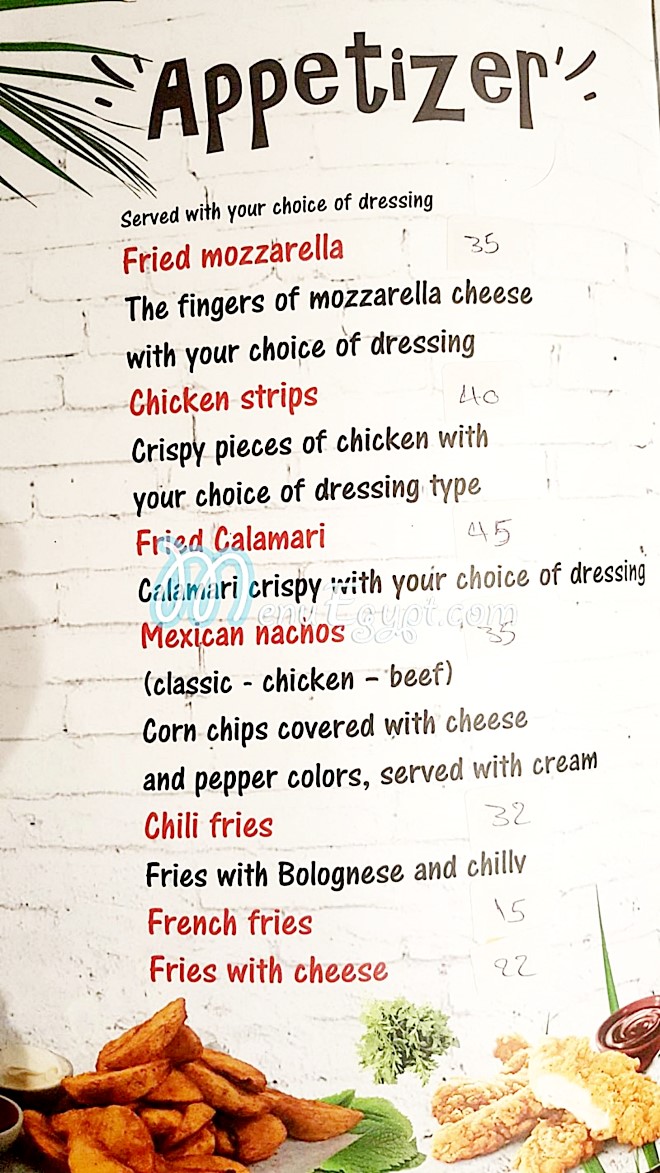 Appetizer
Served with your choice of dressing
Fried mozzarella 35
The fingers of mozzarella cheese
with your choice of dressing
Chicken strips 40
Crispy pieces of chicken with
your choice of dressing type
Fried Calamari 45
Calamari crispy with your choice of dressing
MenuEgypt.com
Mexican nachos 35
(classic - chicken – beef)
Corn chips covered with cheese
and pepper colors, served with cream
Chili fries 32
Fries with Bolognese and chilly
French fries 15
Fries with cheese 22